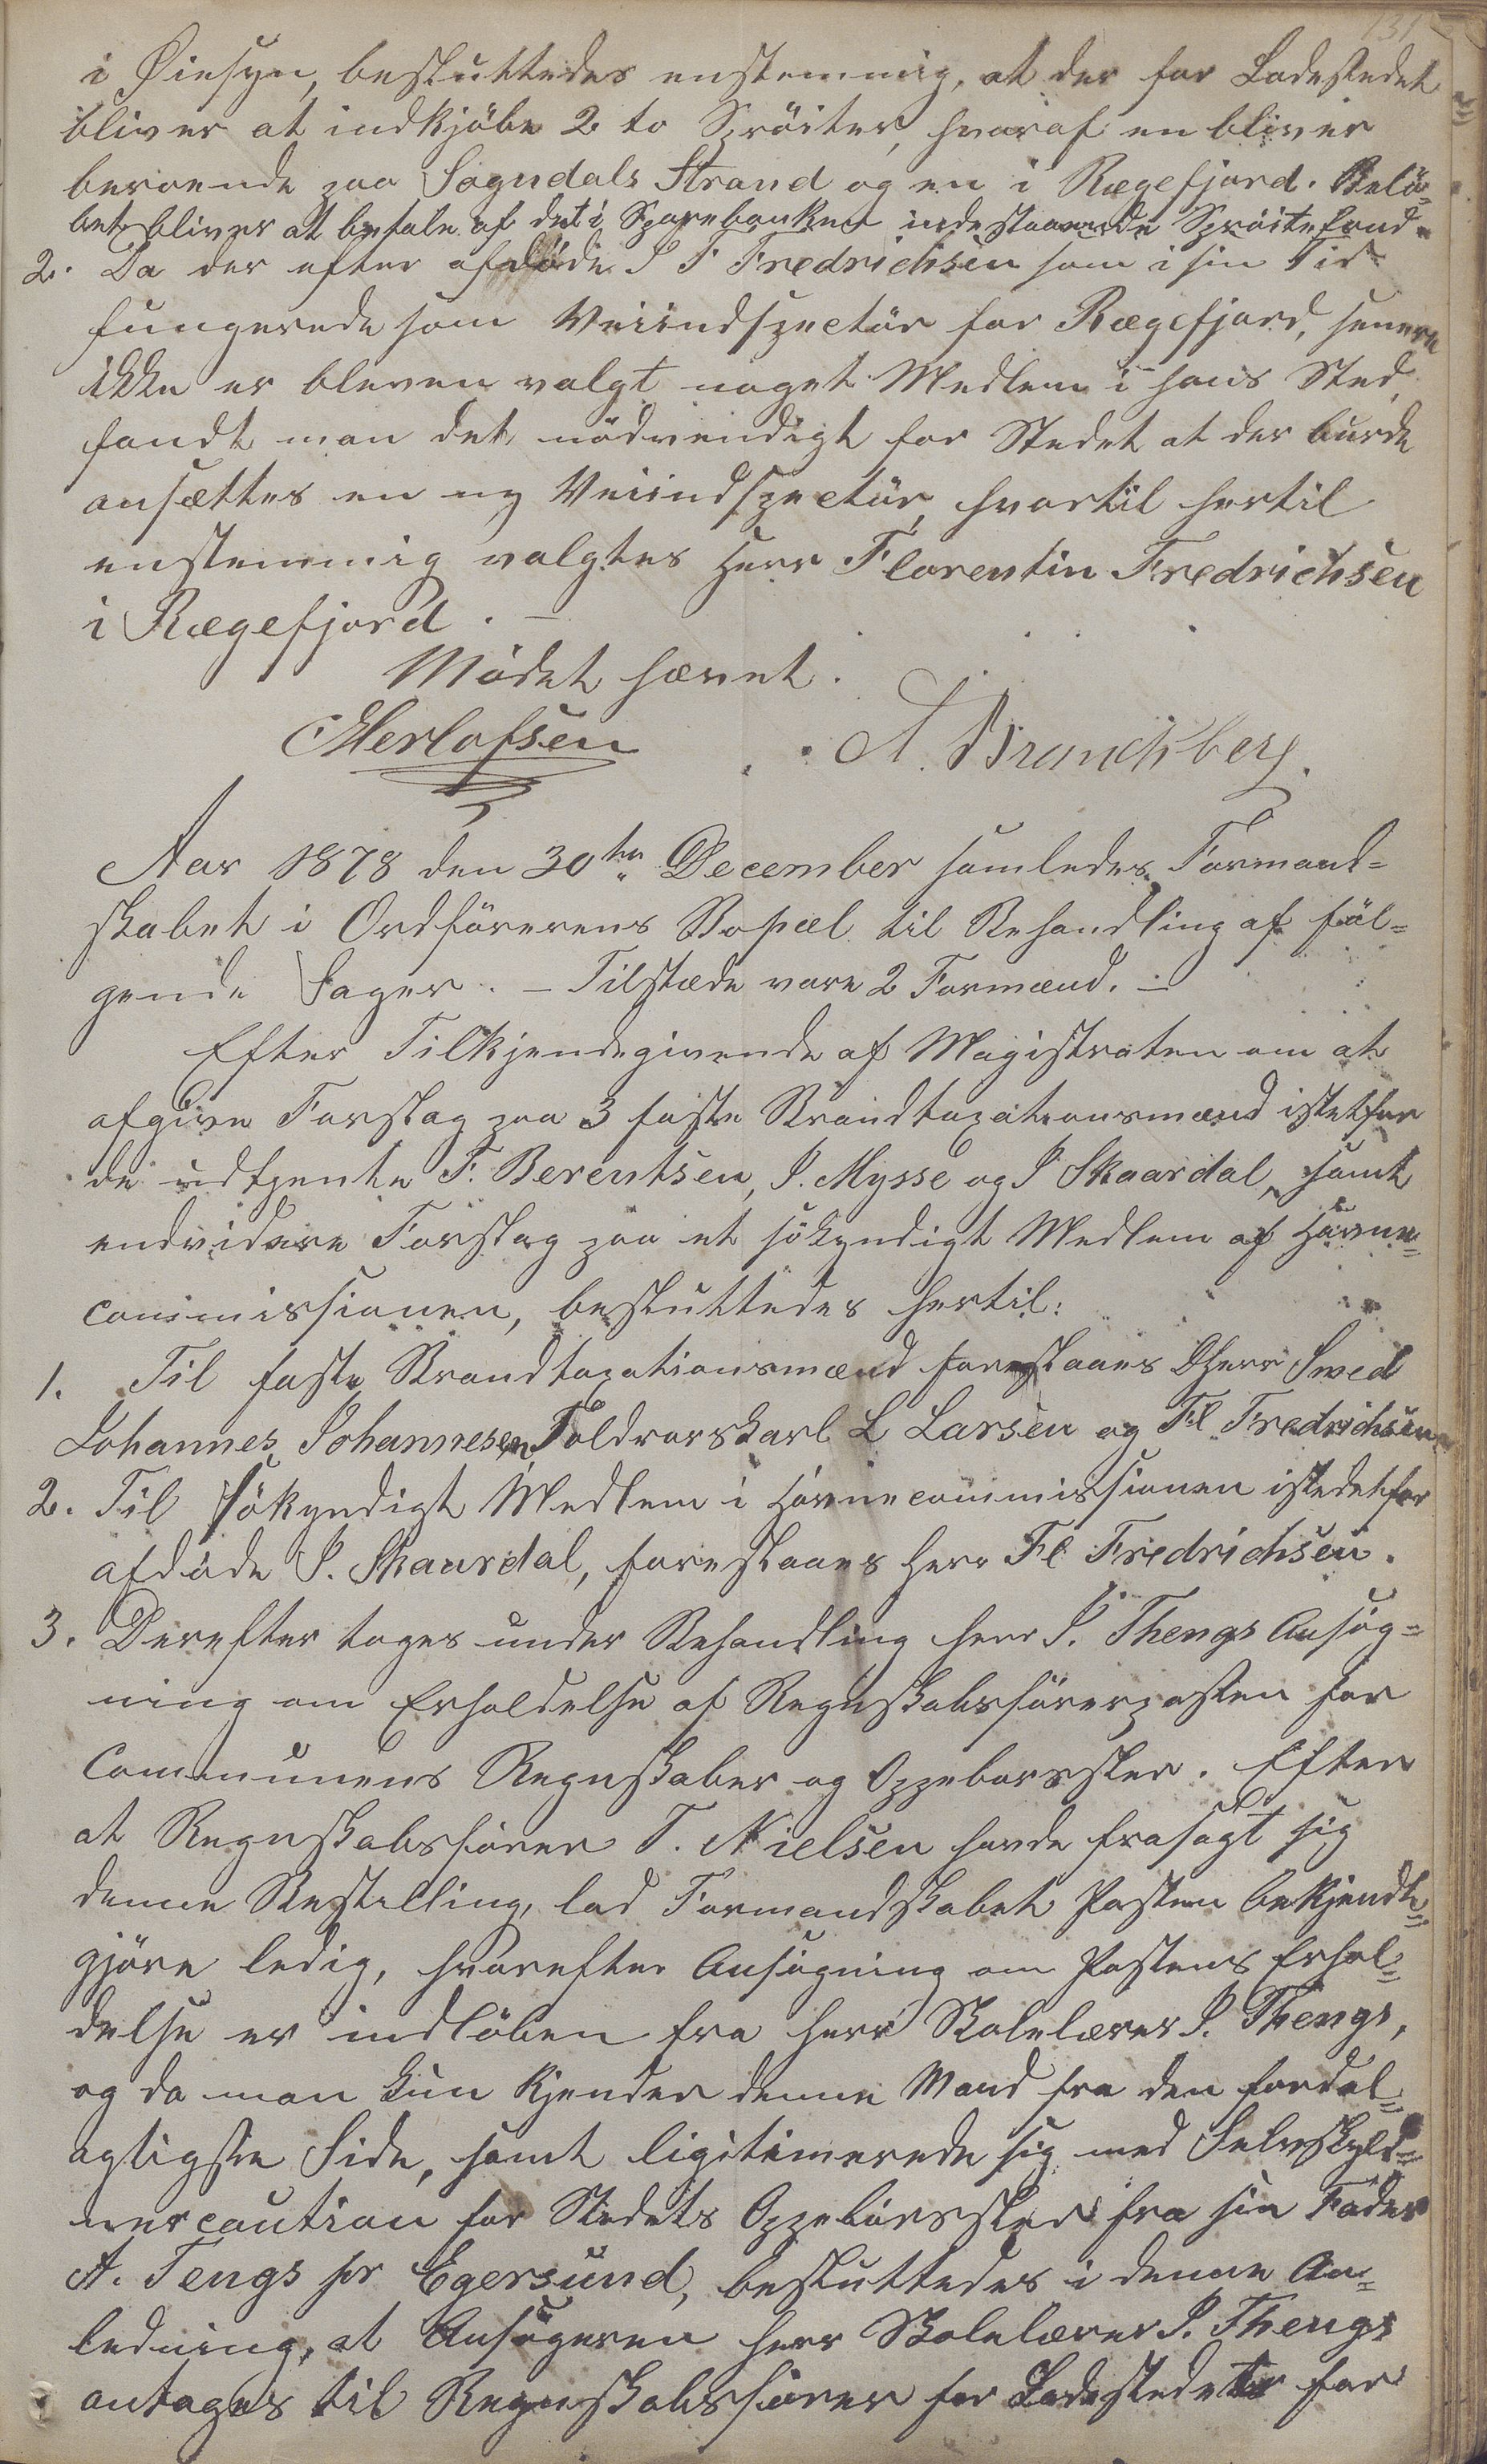 131
i Øiesyn, besluttedes enstemmig, at der for Ladestedet
bliver at indkjöbe 2 to Sprøiter, hvoraf en bliver
beroende paa Sogndals Strand og en i Rægefjord. Belö-
bet bliver at betale af det i Sparebanken indestaaende Sprøitefond.
2. Da der efter afdöde J F Fredrichsen som i sin Tid
fungerede som Veiindspectör for Rægefjord, senere
ikke er bleven valgt noget Medlem i hans Sted,
fandt man det nödvendigt for Stedet at der burde
ansættes en ny Veiindspectör, hvortil hertil
enstemmig valgtes Herr Florentin Fredrichsen
i Rægefjord. —
Mödet hævet.
Herlofsen A. Branchberg.
Aar 1878 den 30te December samledes Formand-
skabet i Ordförerens Bopæl til Behandling af föl-
gende Sager. — Tilstede vare 2 Formænd. —
Efter Tilkjendegivende af Magistraten om at
afgive Forslag paa 3 faste Brandtaxationsmænd istetfor
de udtjente F. Berentsen, P. Mysse og J Skaardal, samt
endvidere Forslag paa et sökyndigt Medlem af Havne-
commissionen, besluttedes hertil:
1. Til faste Brandtaxationsmænd foreslaaes DHerr Smed
Johannes Johannesen, Toldrorskarl L Larsen og Fl. Fredrichsen
2. Til sökyndigt Medlem i Havnecommissionen istedetfor
afdöde J. Skaardal, foreslaaes Herr Fl Fredrichsen.
3. Derefter toges under Behandling Herr P. Thengs Ansög-
ning om Erholdelse af Regnskabsförerposten for
Communens Regnskaber og Oppebørsler. Efter
at Regnskabsförer T. Nielsen havde frasagt sig
denne Bestilling, lod Formandskabet Posten bekjendt-
gjöre ledig, hvorefter Ansögning om Postens Erhol-
delse er indlöben fra Herr Skolelærer P. Thengs,
og da man kun kjender denne Mand fra den fordel-
agtigste Side, samt ligitimerede sig med Selvskyld-
nercaution for Stedets Oppebørsler fra sin Fader
A. Tengs pr Egersund, besluttedes i denne An-
ledning, at Ansögeren Herr Skolelærer P. Thengs
antages til Regnskabsförer for Ladestedet for